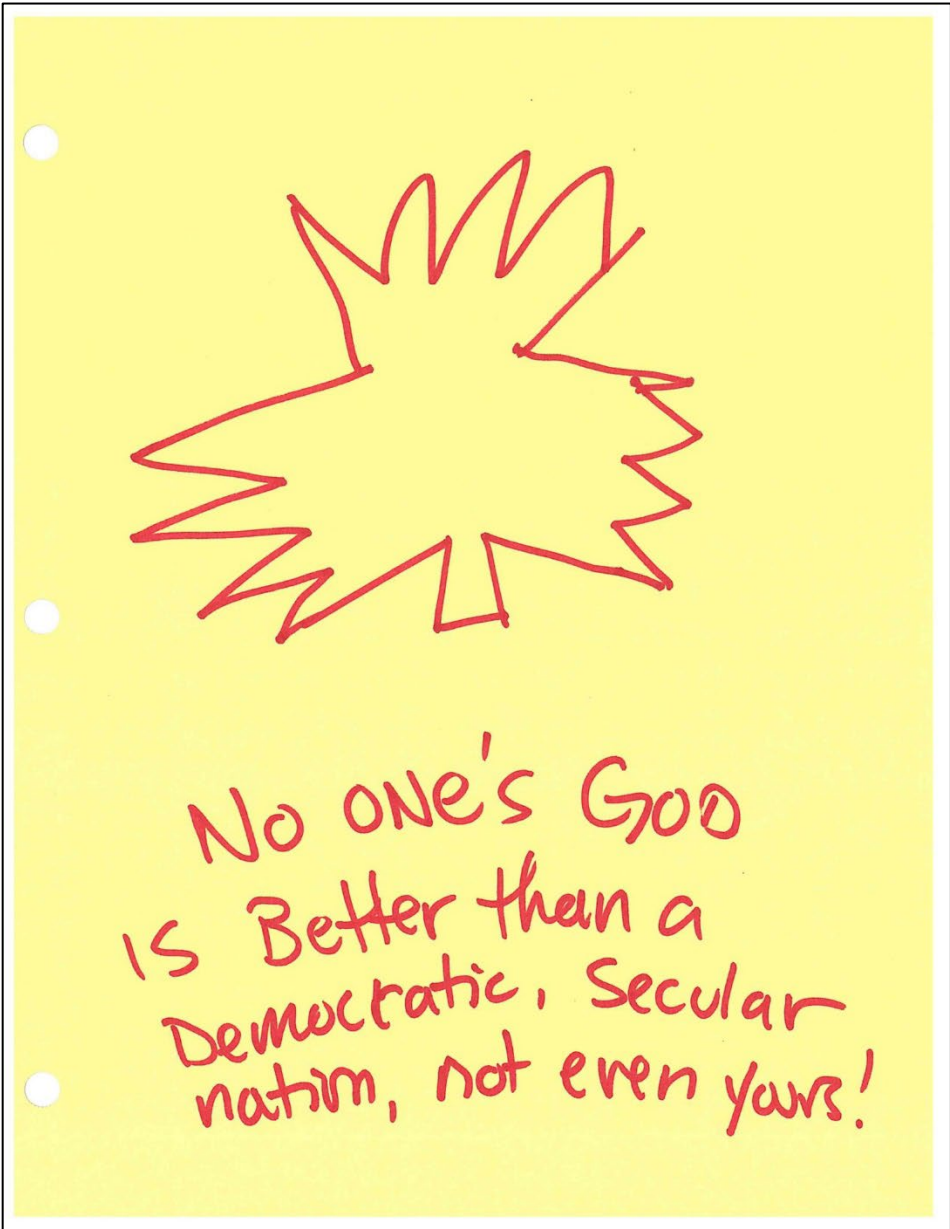 No ONe's GOD
IS Better than a
Democratic, Secular
nation, not even yours!